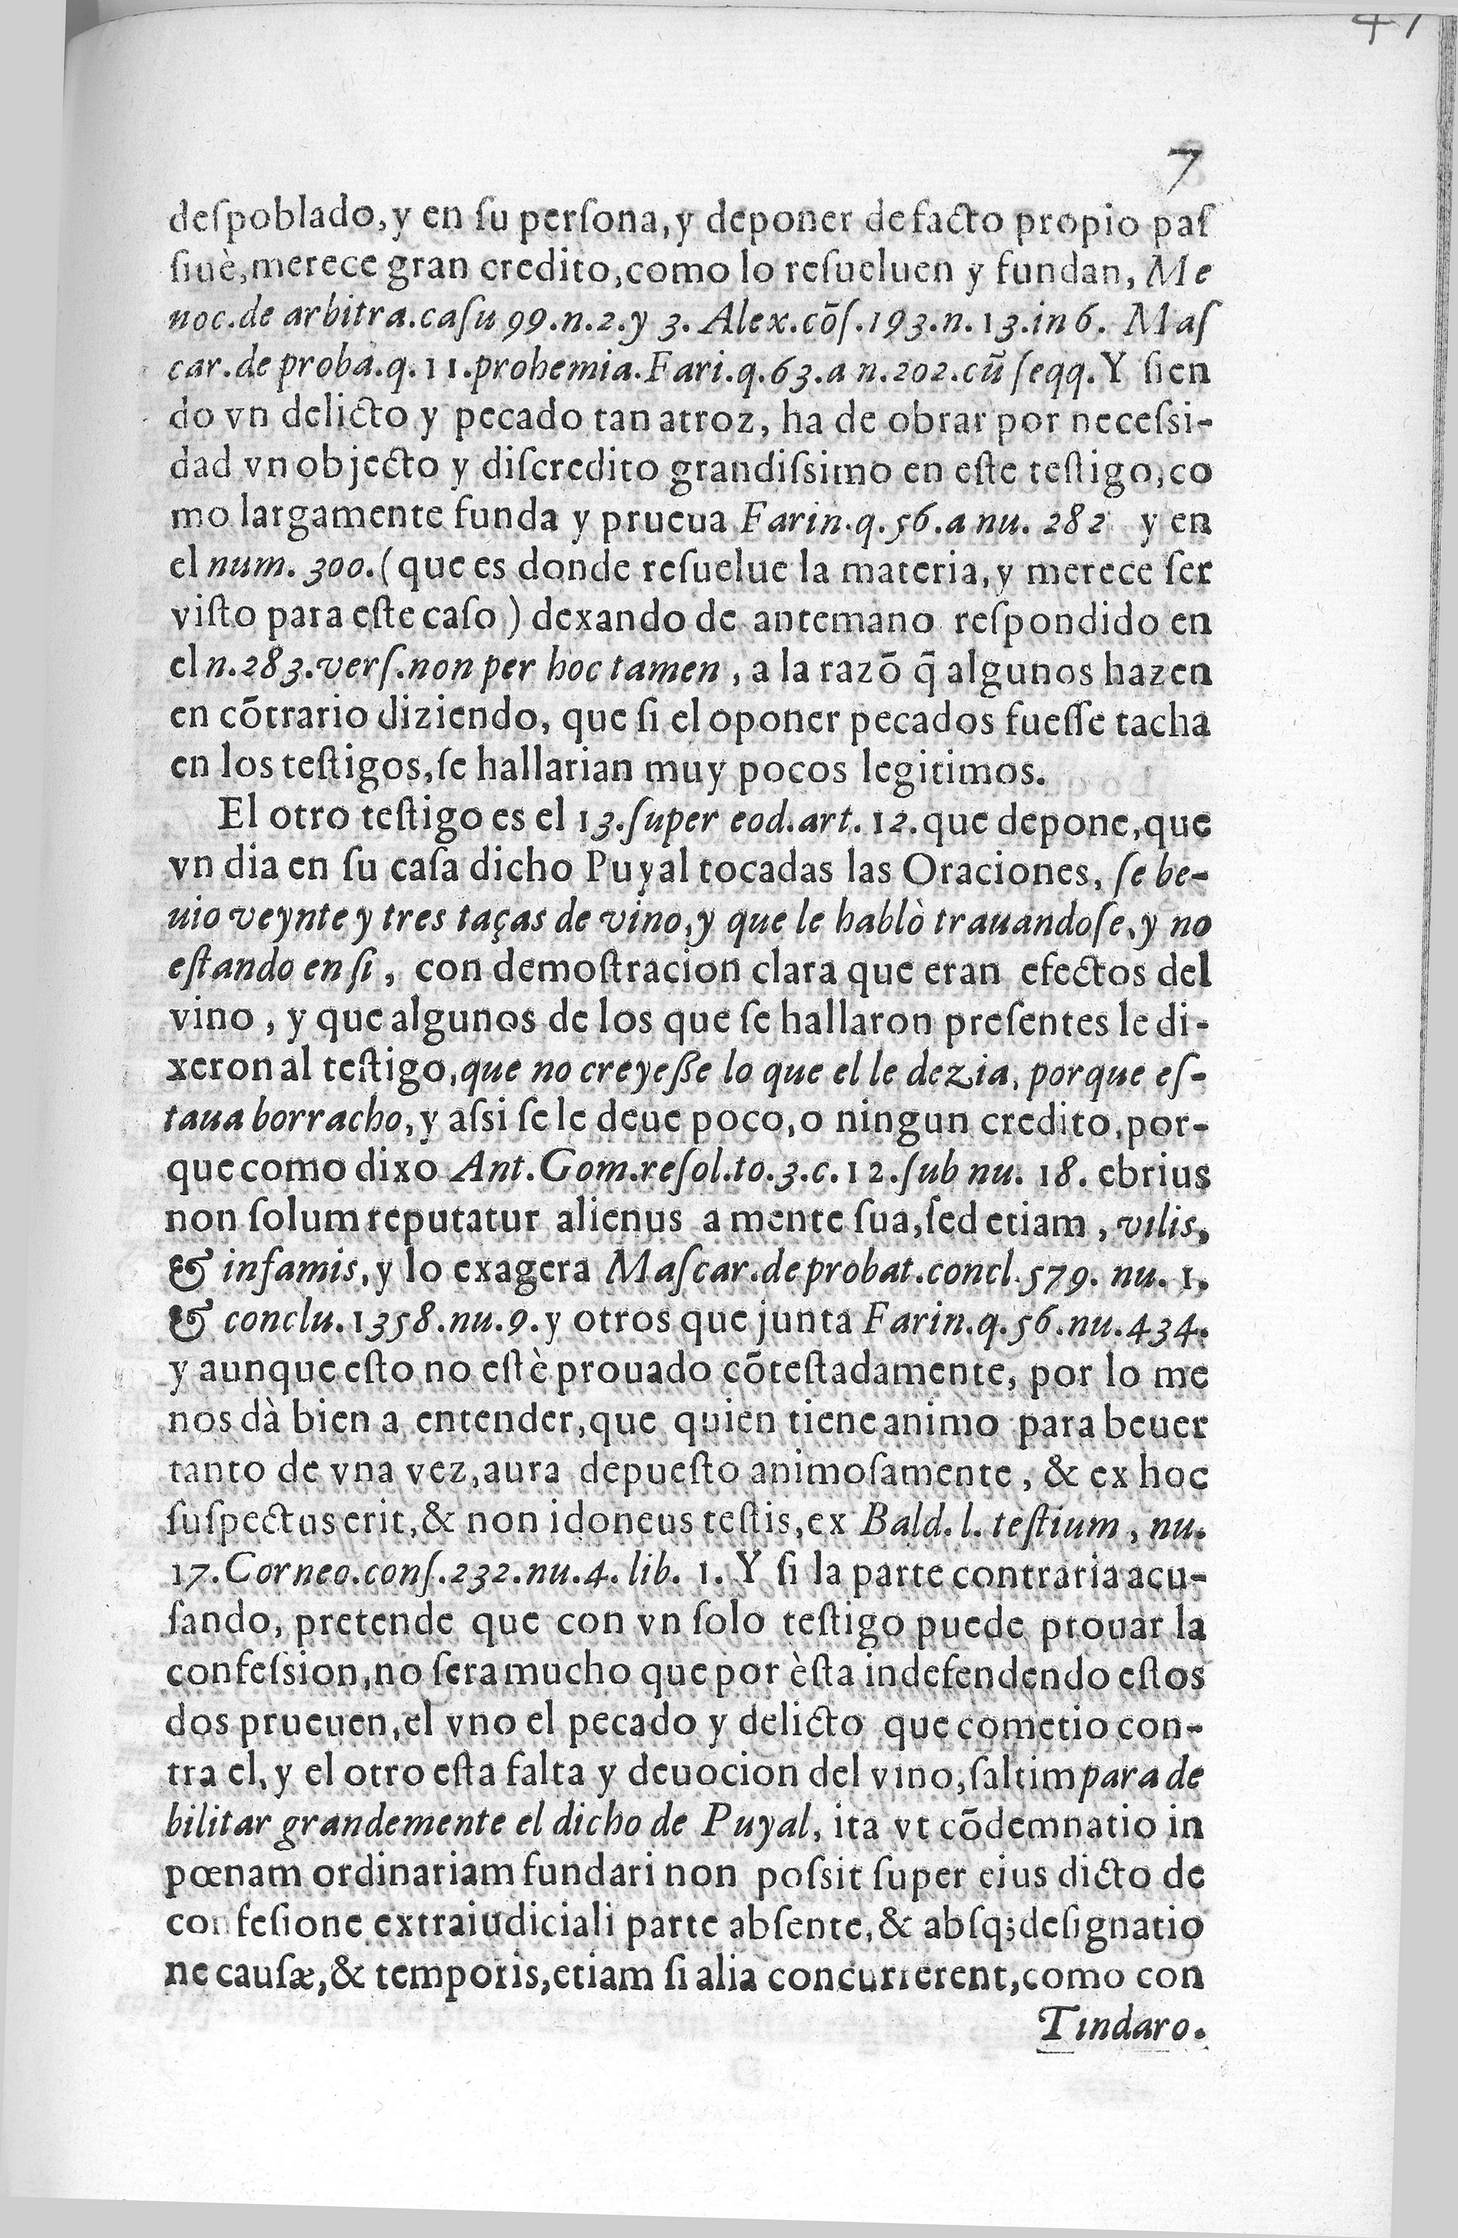 7
deſpoblado, y en ſu perſona, y deponer de facto propio paſ
ſiuè, merece gran credito, como lo reſueluen y fundan, Me
noc. de arbitra. caſu 99. n. 2. y 3. Alex. cõſ. 193. n. 13. in 6. Maſ
car. de proba. q. 11. prohemia. Fari. q. 63. a n. 202. cũ ſeqq. Y ſien
do vn delicto y pecado tan atroz, ha de obrar por neceſsi-
dad vn objecto y diſcredito grandiſsimo en eſte teſtigo, co
mo largamente funda y prueua Farin. q. 56. a nu. 282 y en
el num. 300. (que es donde reſuelue la materia, y merece ſer
viſto para eſte caſo) dexando de antemano reſpondido en
el n. 283. verſ. non per hoc tamen, a la razõ q̃ algunos hazen
en cõtrario diziendo, que ſi el oponer pecados fueſſe tacha
en los teſtigos, ſe hallarian muy pocos legitimos.
El otro teſtigo es el 13. ſuper eod. art. 12. que depone, que
vn dia en ſu caſa dicho Puyal tocadas las Oraciones, ſe be-
uio veynte y tres taças de vino, y que le hablò trauandoſe, y no
eſtando en ſi, con demoſtracion clara que eran efectos del
vino, y que algunos de los que ſe hallaron preſentes le di-
xeron al teſtigo, que no creyeſſe lo que el le dezia, porque eſ-
taua borracho, y aſsi ſe le deue poco, o ningun credito, por-
que como dixo Ant. Gom. reſol. to. 3. c. 12. ſub nu. 18. ebrius
non ſolum reputatur alienus a mente ſua, ſed etiam, vilis,
& infamis, y lo exagera Maſcar. de probat. concl. 579. nu. 1.
& conclu. 1358. nu. 9. y otros que junta Farin. q. 56. nu. 434.
y aunque eſto no eſtè prouado cõteſtadamente, por lo me
nos dà bien a entender, que quien tiene animo para beuer
tanto de vna vez, aura depueſto animoſamente, & ex hoc
ſuſpectus erit, & non idoneus teſtis, ex Bald. l. teſtium, nu.
17. Corneo. conſ. 232. nu. 4. lib. 1. Y ſi la parte contraria acu-
ſando, pretende que con vn ſolo teſtigo puede prouar la
confeſsion, no ſera mucho que por èſta in defendendo eſtos
dos prueuen, el vno el pecado y delicto que cometio con-
tra el, y el otro eſta falta y deuocion del vino, ſaltim para de
bilitar grandemente el dicho de Puyal, ita vt cõdemnatio in
pœnam ordinariam fundari non poſsit ſuper eius dicto de
confeſione extraiudiciali parte abſente, & abſq; deſignatio
ne cauſæ, & temporis, etiam ſi alia concurrerent, como con
Tindaro.